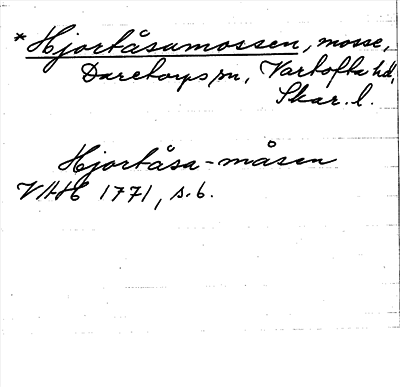 *Hjortåsamossen, mosse,
Daretorps sn, Vartofta hd,
Skar. l.
Hjortåsa-måsen
VHH 1771, s. 6.